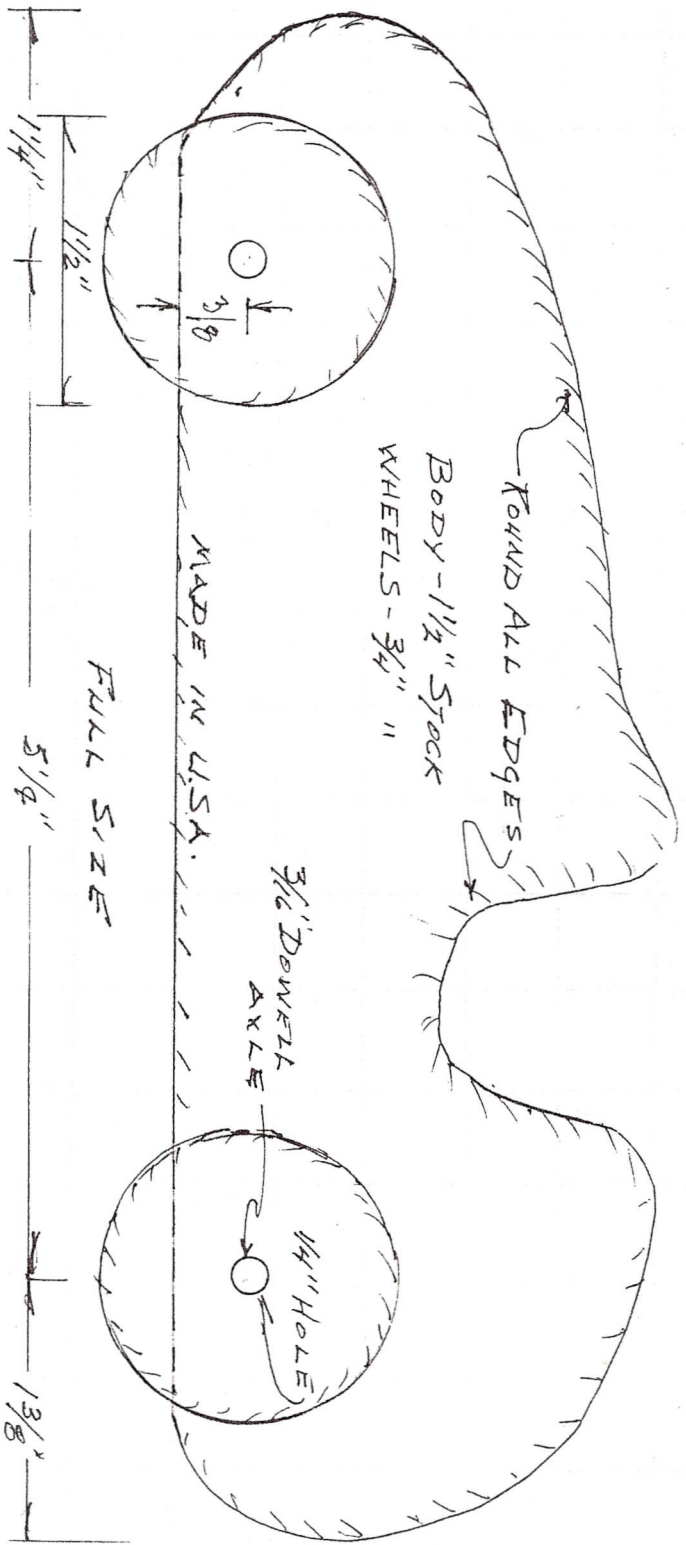 ROUND ALL EDGES
BODY - 1 1/2" STOCK
WHEELS - 3/4" "
3/16" DOWELL
AXLE
1/4" HOLE
3/8
MADE IN U.S.A.
1 1/2"
FULL SIZE
1 1/4"
5 1/4"
1 3/8"